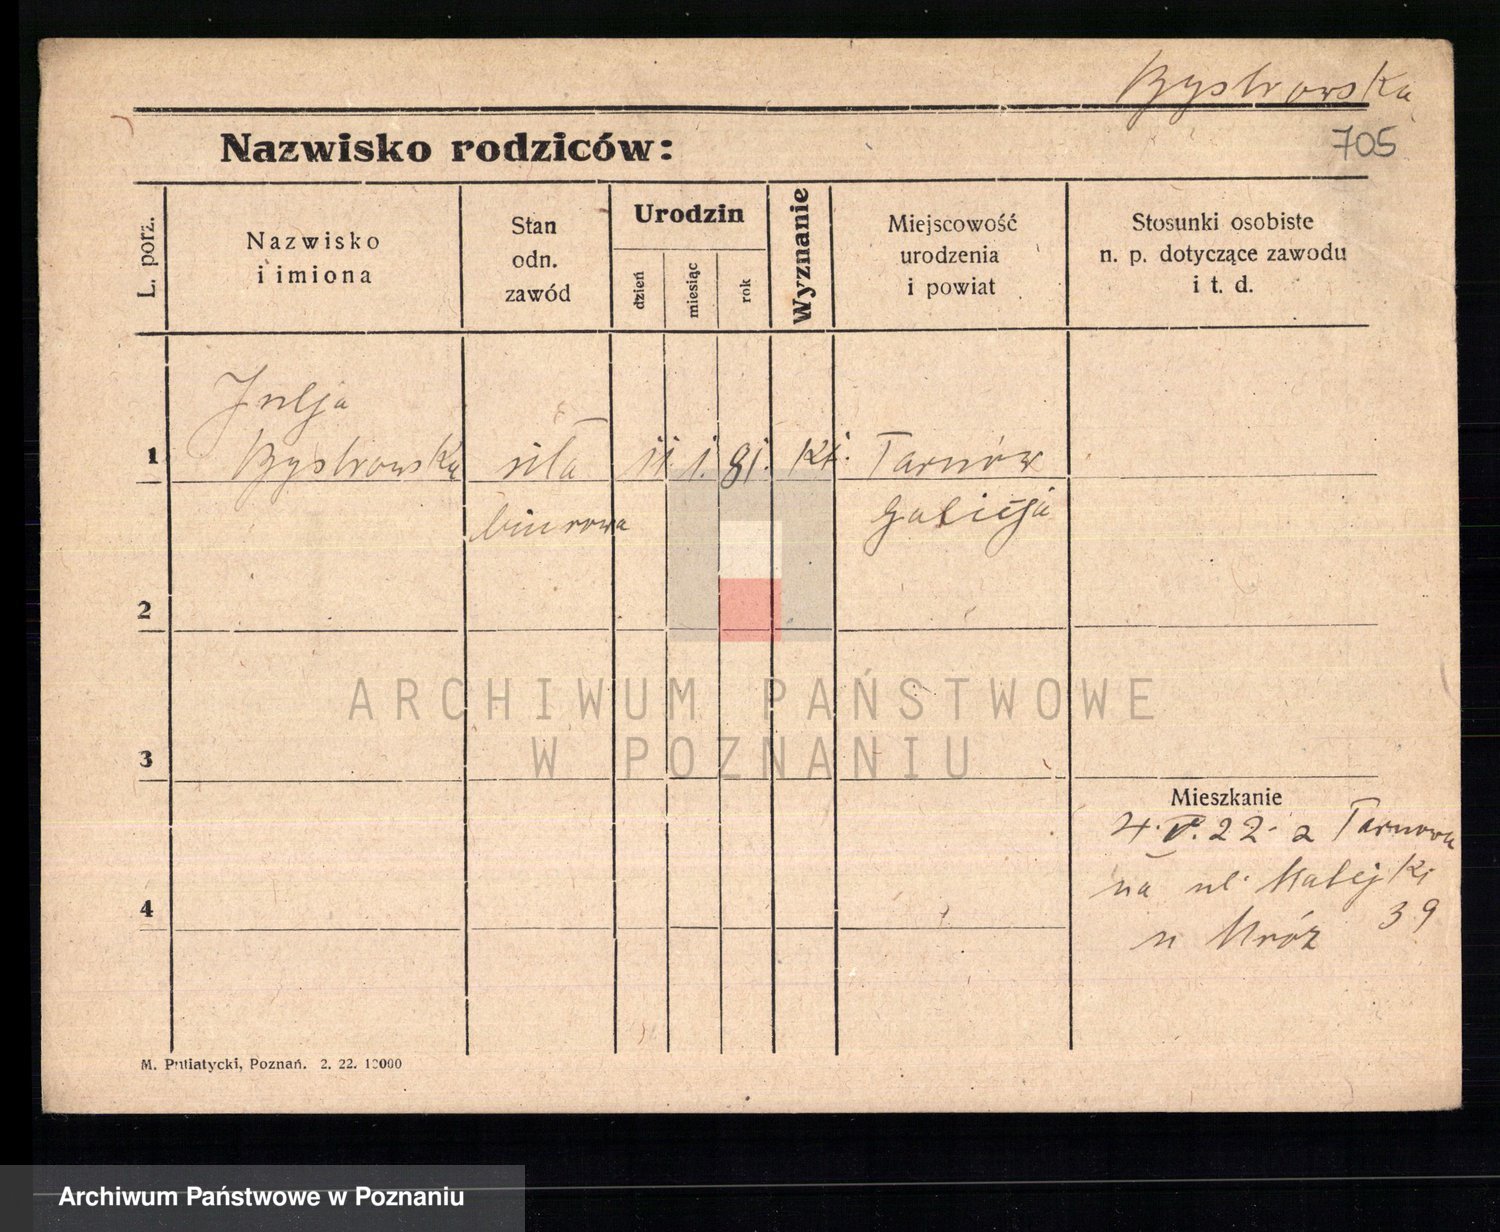 Bystrowska
705
Nazwisko rodziców:
L. porz.
Nazwisko
i imiona
Stan
odn.
zawód
Urodzin
dzień
miesiąc
rok
Wyznanie
Miejscowość
urodzenia
i powiat
Stosunki osobiste
n. p. dotyczące zawodu
i t. d.
Julja
1 Bystrowska siła 11. 1. 81. kt. Tarnów
biurowa Galicja
2
3
ARCHIWUM PAŃSTWOWE
W POZNANIU
Mieszkanie
4. V. 22. z Tarnowa
na ul. Matejki
39
u Mróz
4
M. Putiatycki, Poznań. 2. 22. 10000
Archiwum Państwowe w Poznaniu